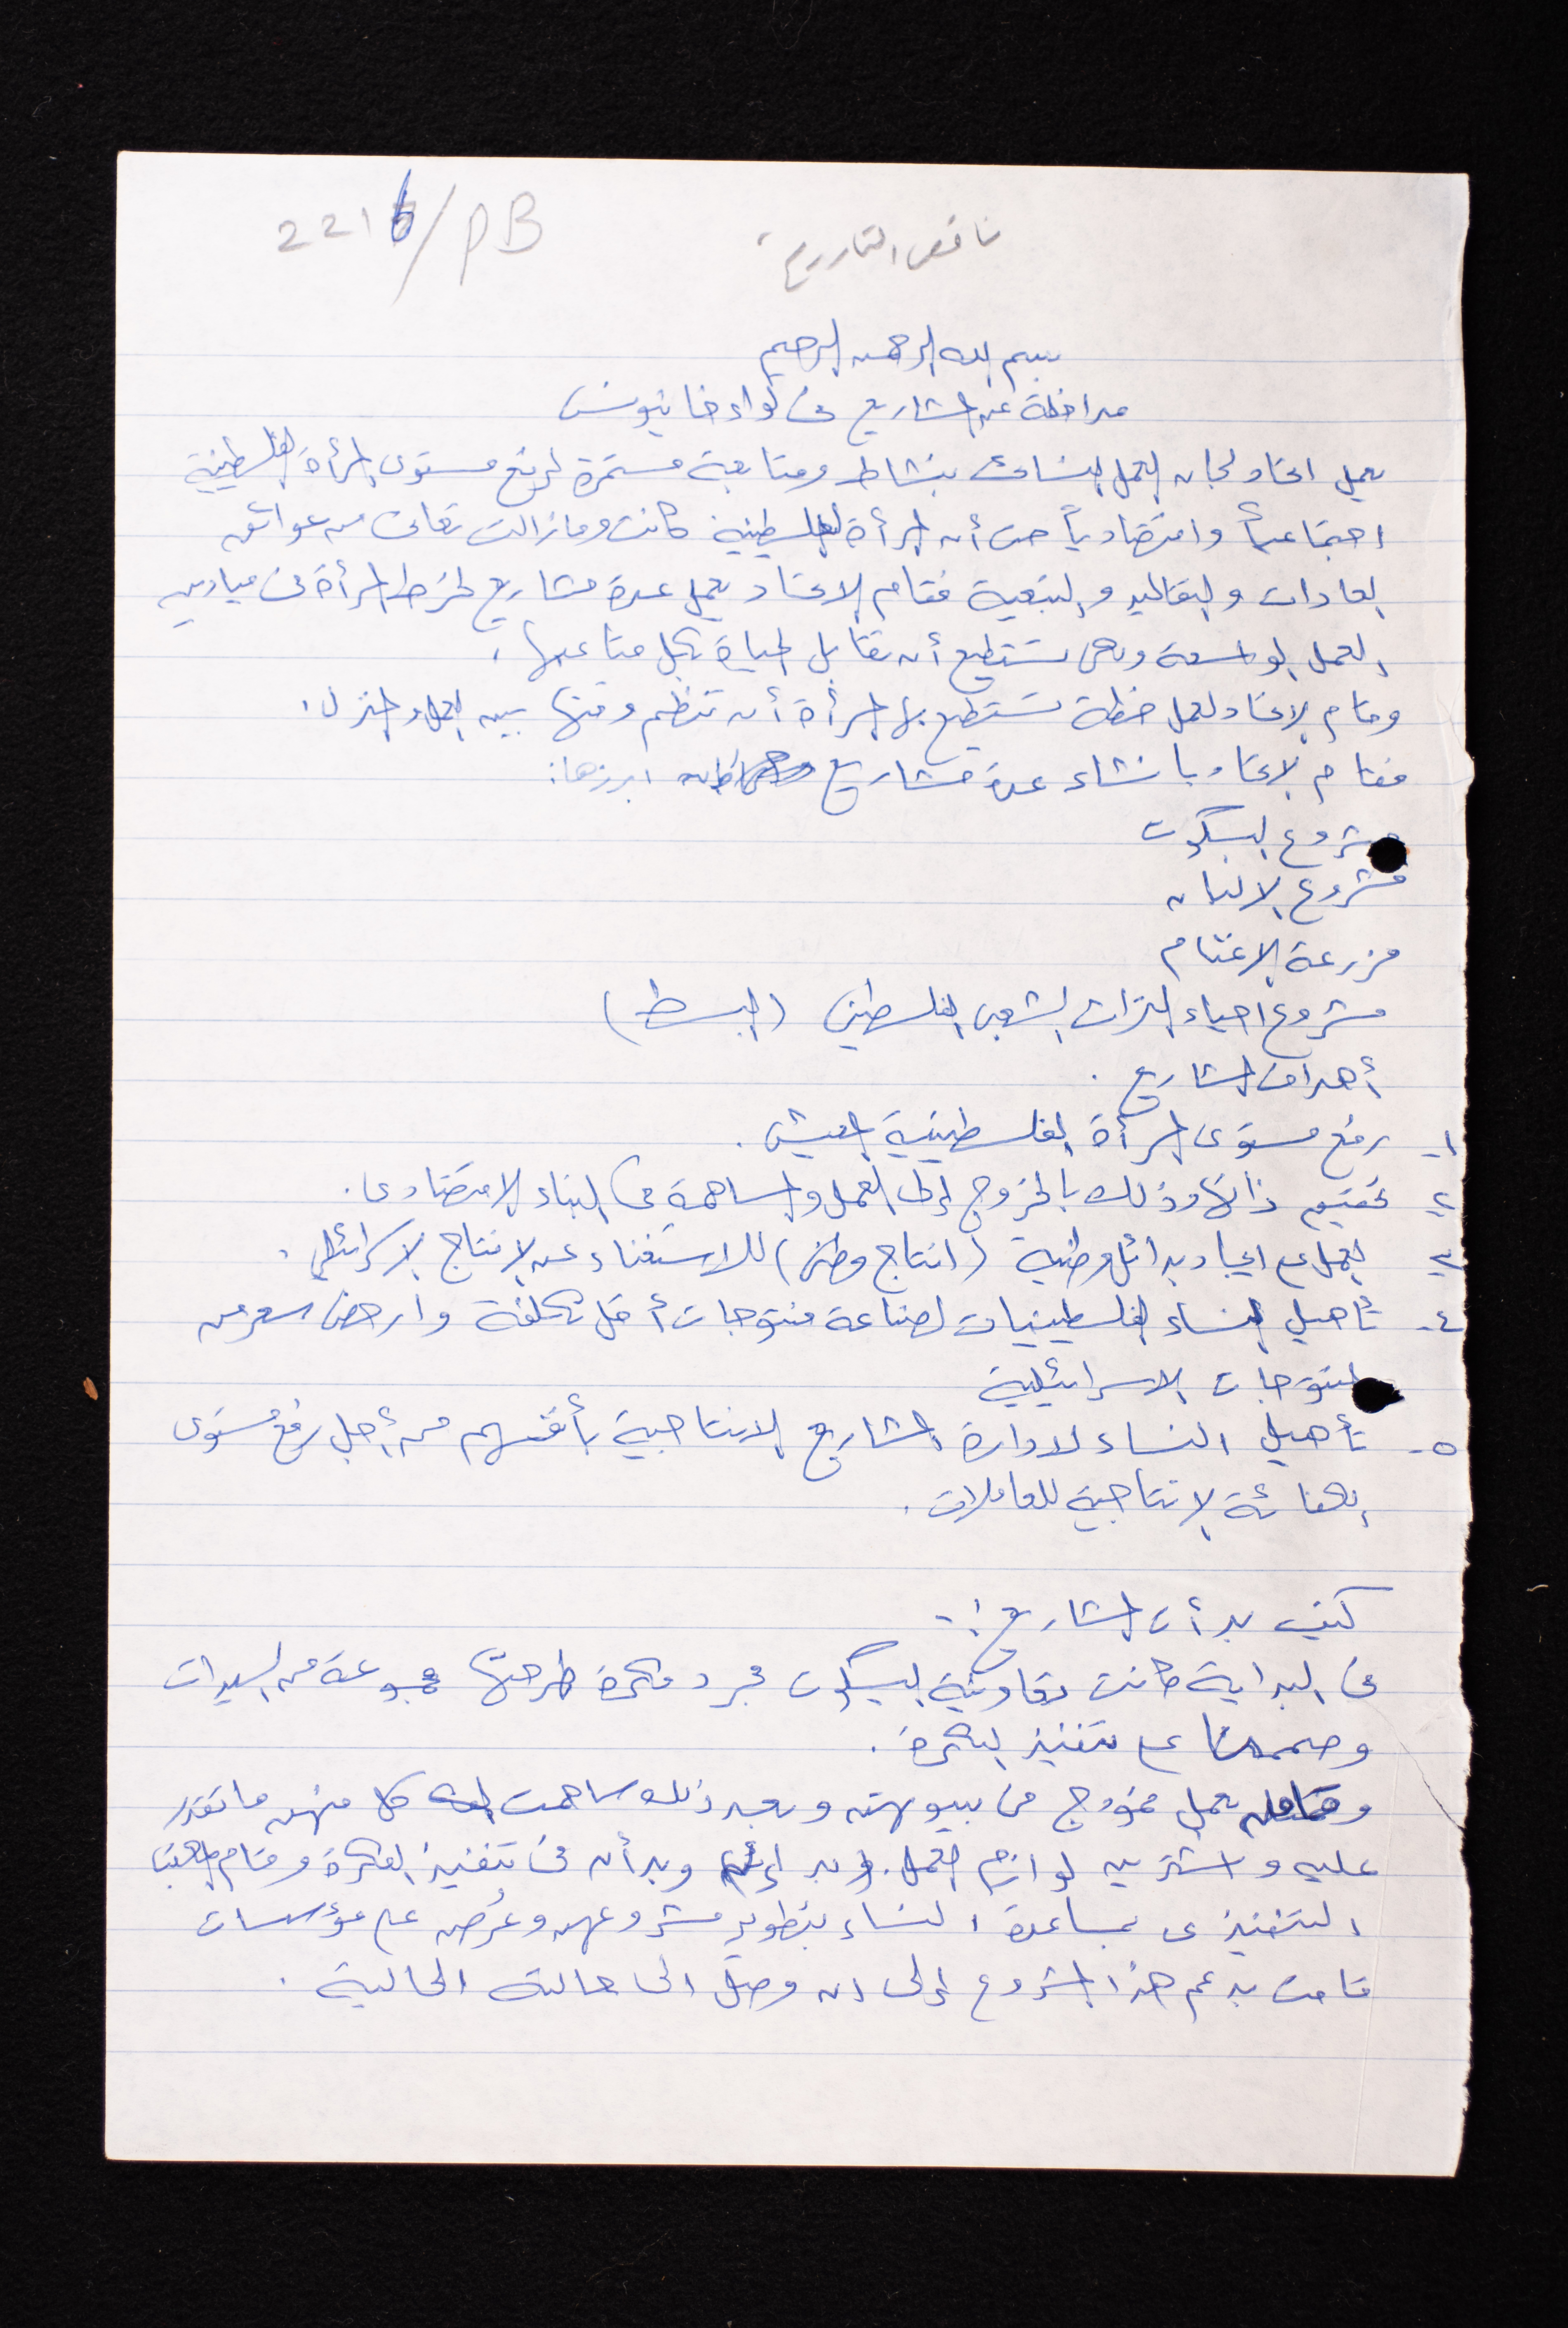 2216/PB
ناقص التاريخ
بسم الله الرحمن الرحيم
مداخلة عن المشاريع في لواء خانيونس
يعمل اتحاد لجان العمل النسائي بنشاط ومتابعة مستمرة لرفع مستوى المرأة الفلسطينية
اجتماعياً واقتصادياً حيث أن المرأة الفلسطينية كانت وما زالت تعاني من عوائق
العادات والتقاليد والتبعية فقام الاتحاد بعمل عدة مشاريع لخرط المرأة في ميادين
العمل الواسعة وهي تستطيع أن تقابل الحياة بكل متاعبها،
وقام الاتحاد لعمل خطة تستطيع بها المرأة أن تنظم وقتها بين العمل والمنزل.
فقام الاتحاد بانشاء عدة مشاريع ابرزها:
مشروع البسكوت
مشروع الالبان
مزرعة الاغنام
مشروع احياء التراث الشعبي الفلسطيني (البسط)
أهداف المشاريع.
١- رفع مستوى المرأة الفلسطينية المعيشي.
٢- تحقيق ذاتها وذلك بالخروج إلى العمل والمساهمة في البناء الاقتصادي.
٣- العمل على ايجاد بدائل وطنية (انتاج وطني) للاستغناء عن الانتاج الاسرائيلي.
٤- تأهيل النساء الفلسطينيات لصناعة منتوجات أقل تكلفة وارخص سعر من
المنتوجات الاسرائيلية
٥- تأهيل النساء لادارة المشاريع الانتاجية بأنفسهم من أجل رفع مستوى
الكفائة الانتاجية للعاملات.
كيف بدأت المشاريع:-
في البداية كانت تعاونية البسكوت مجرد فكرة طرحتها مجموعة من السيدات
وصممنا على تنفيذ الفكرة.
وقاموا بعمل نموذج في بيوتهن وبعد ذلك ساهمت كل منهن ما تقدر
عليه واشترين لوازم العمل. وبدأن في تنفيذ الفكرة وقام المكتب
التنفيذي بمساعدة النساء بتطوير مشروعهن وعُرض على مؤسسات
قامت بدعم هذا المشروع إلى ان وصل الى حالته الحالية.